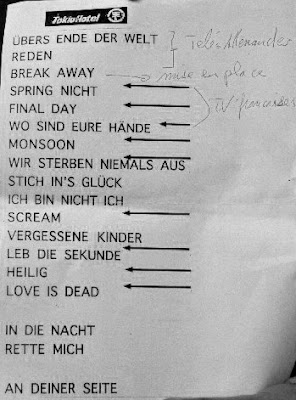 Tokio Hotel
ÜBERS ENDE DER WELT
REDEN
BREAK AWAY mise en place
SPRING NICHT
FINAL DAY
WO SIND EURE HÄNDE
MONSOON
WIR STERBEN NIEMALS AUS
STICH IN'S GLÜCK
ICH BIN NICHT ICH
SCREAM
VERGESSENE KINDER
LEB DIE SEKUNDE
HEILIG
LOVE IS DEAD
IN DIE NACHT
RETTE MICH
AN DEINER SEITE